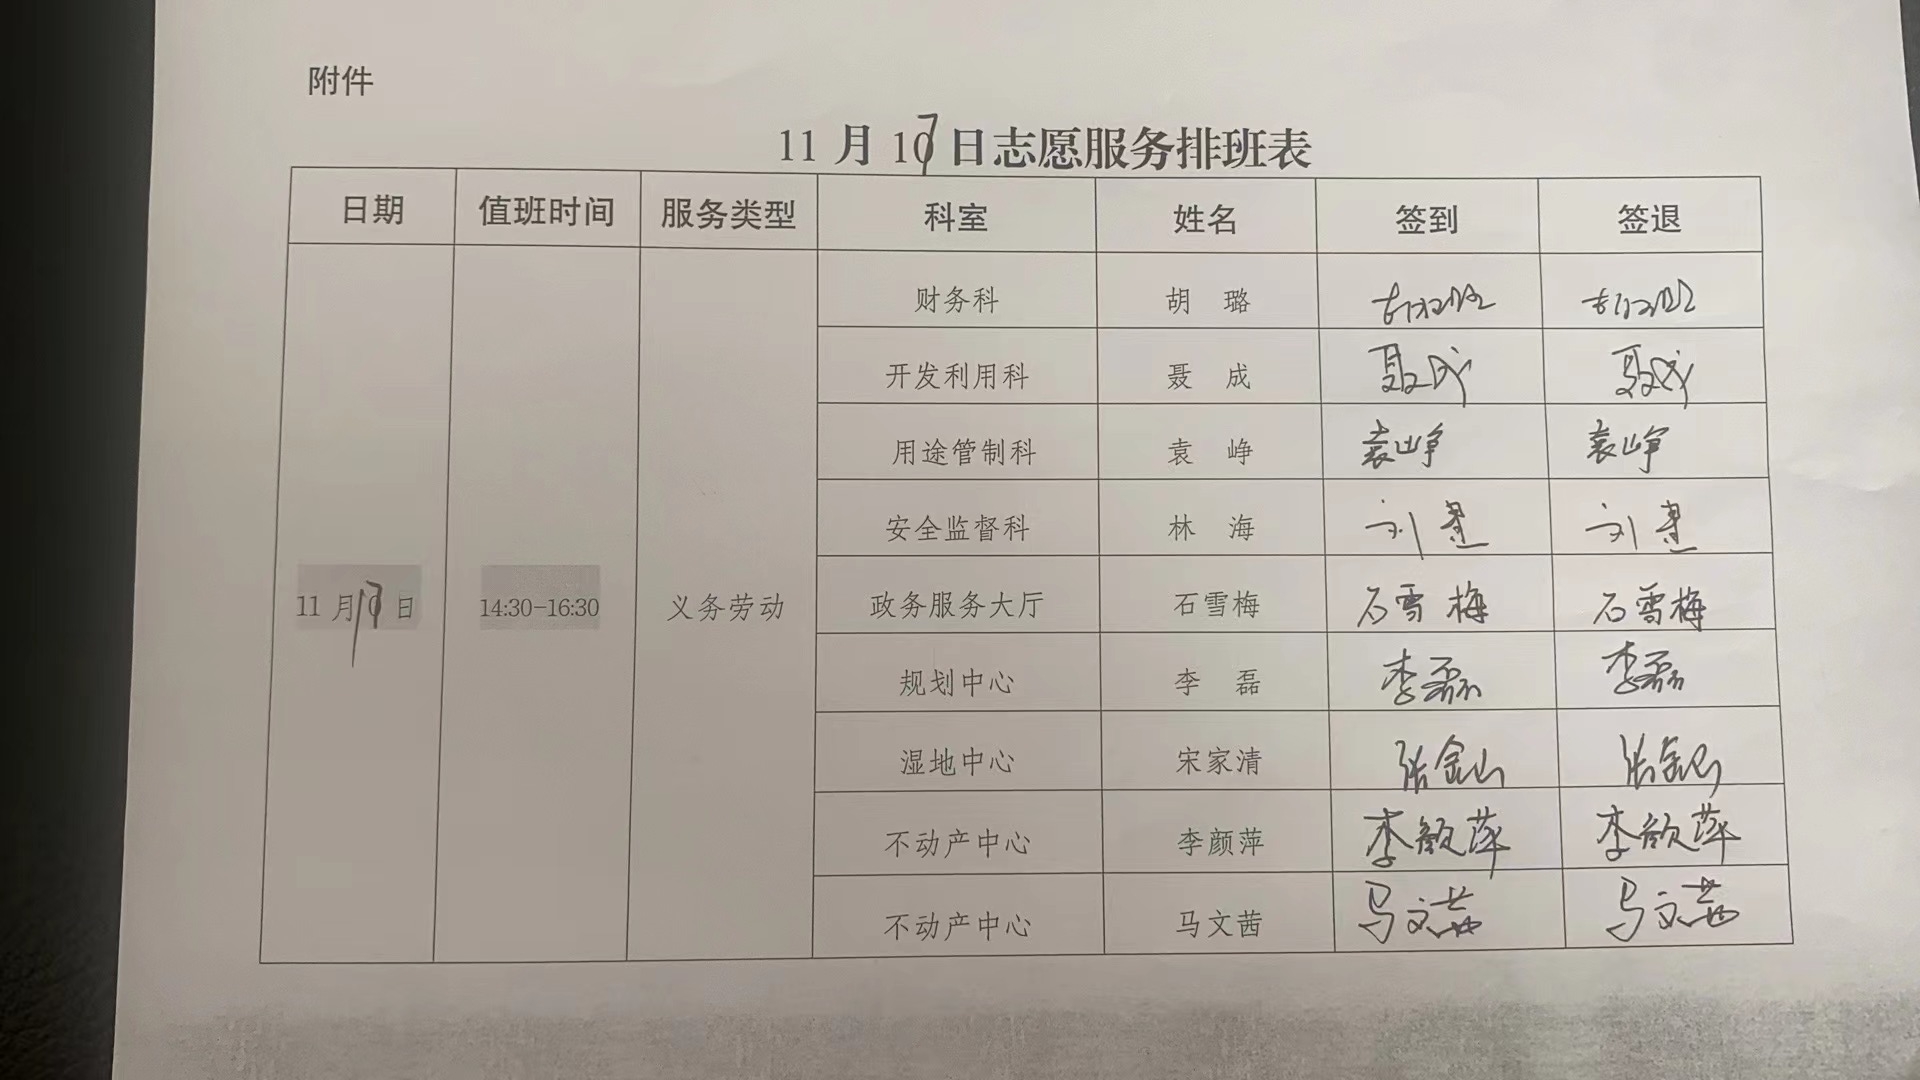 附件
11 月 17 日志愿服务排班表
日期 值班时间 服务类型 科室 姓名 签到 签退
11 月 17 日 14:30-16:30 义务劳动
财务科 胡 璐 胡璐 胡璐
开发利用科 聂 成 聂成 聂成
用途管制科 袁 峥 袁峥 袁峥
安全监督科 林 海 刘 刘
政务服务大厅 石雪梅 石雪梅 石雪梅
规划中心 李 磊 李磊 李磊
湿地中心 宋家清 张金山 张金山
不动产中心 李颜萍 李颜萍 李颜萍
不动产中心 马文茜 马文茜 马文茜